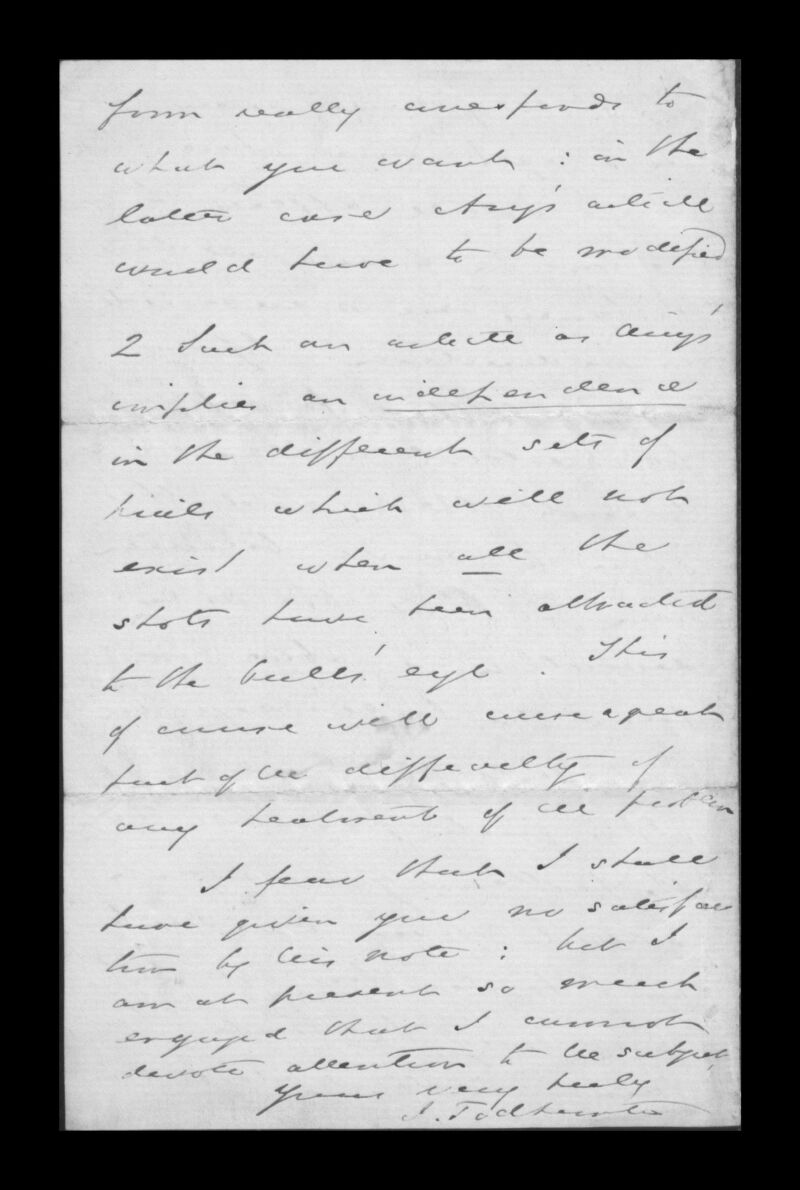 form really corresponds to
what you want : in the
latter case Airy's article
would have to be modified
2 Such an article as Airy's
implies an independence
in the different sets of
trials which will not
exist when all the
shots have been attracted
to the bull's eye . This
of course will cause a great
part of the difficulty of
any treatment of the problem
I fear that I shall
have given you no satisfac
tion by this note : but I
am at present so much
engaged that I cannot
devote attention to the subject
Yours very truly
I. Todhunter